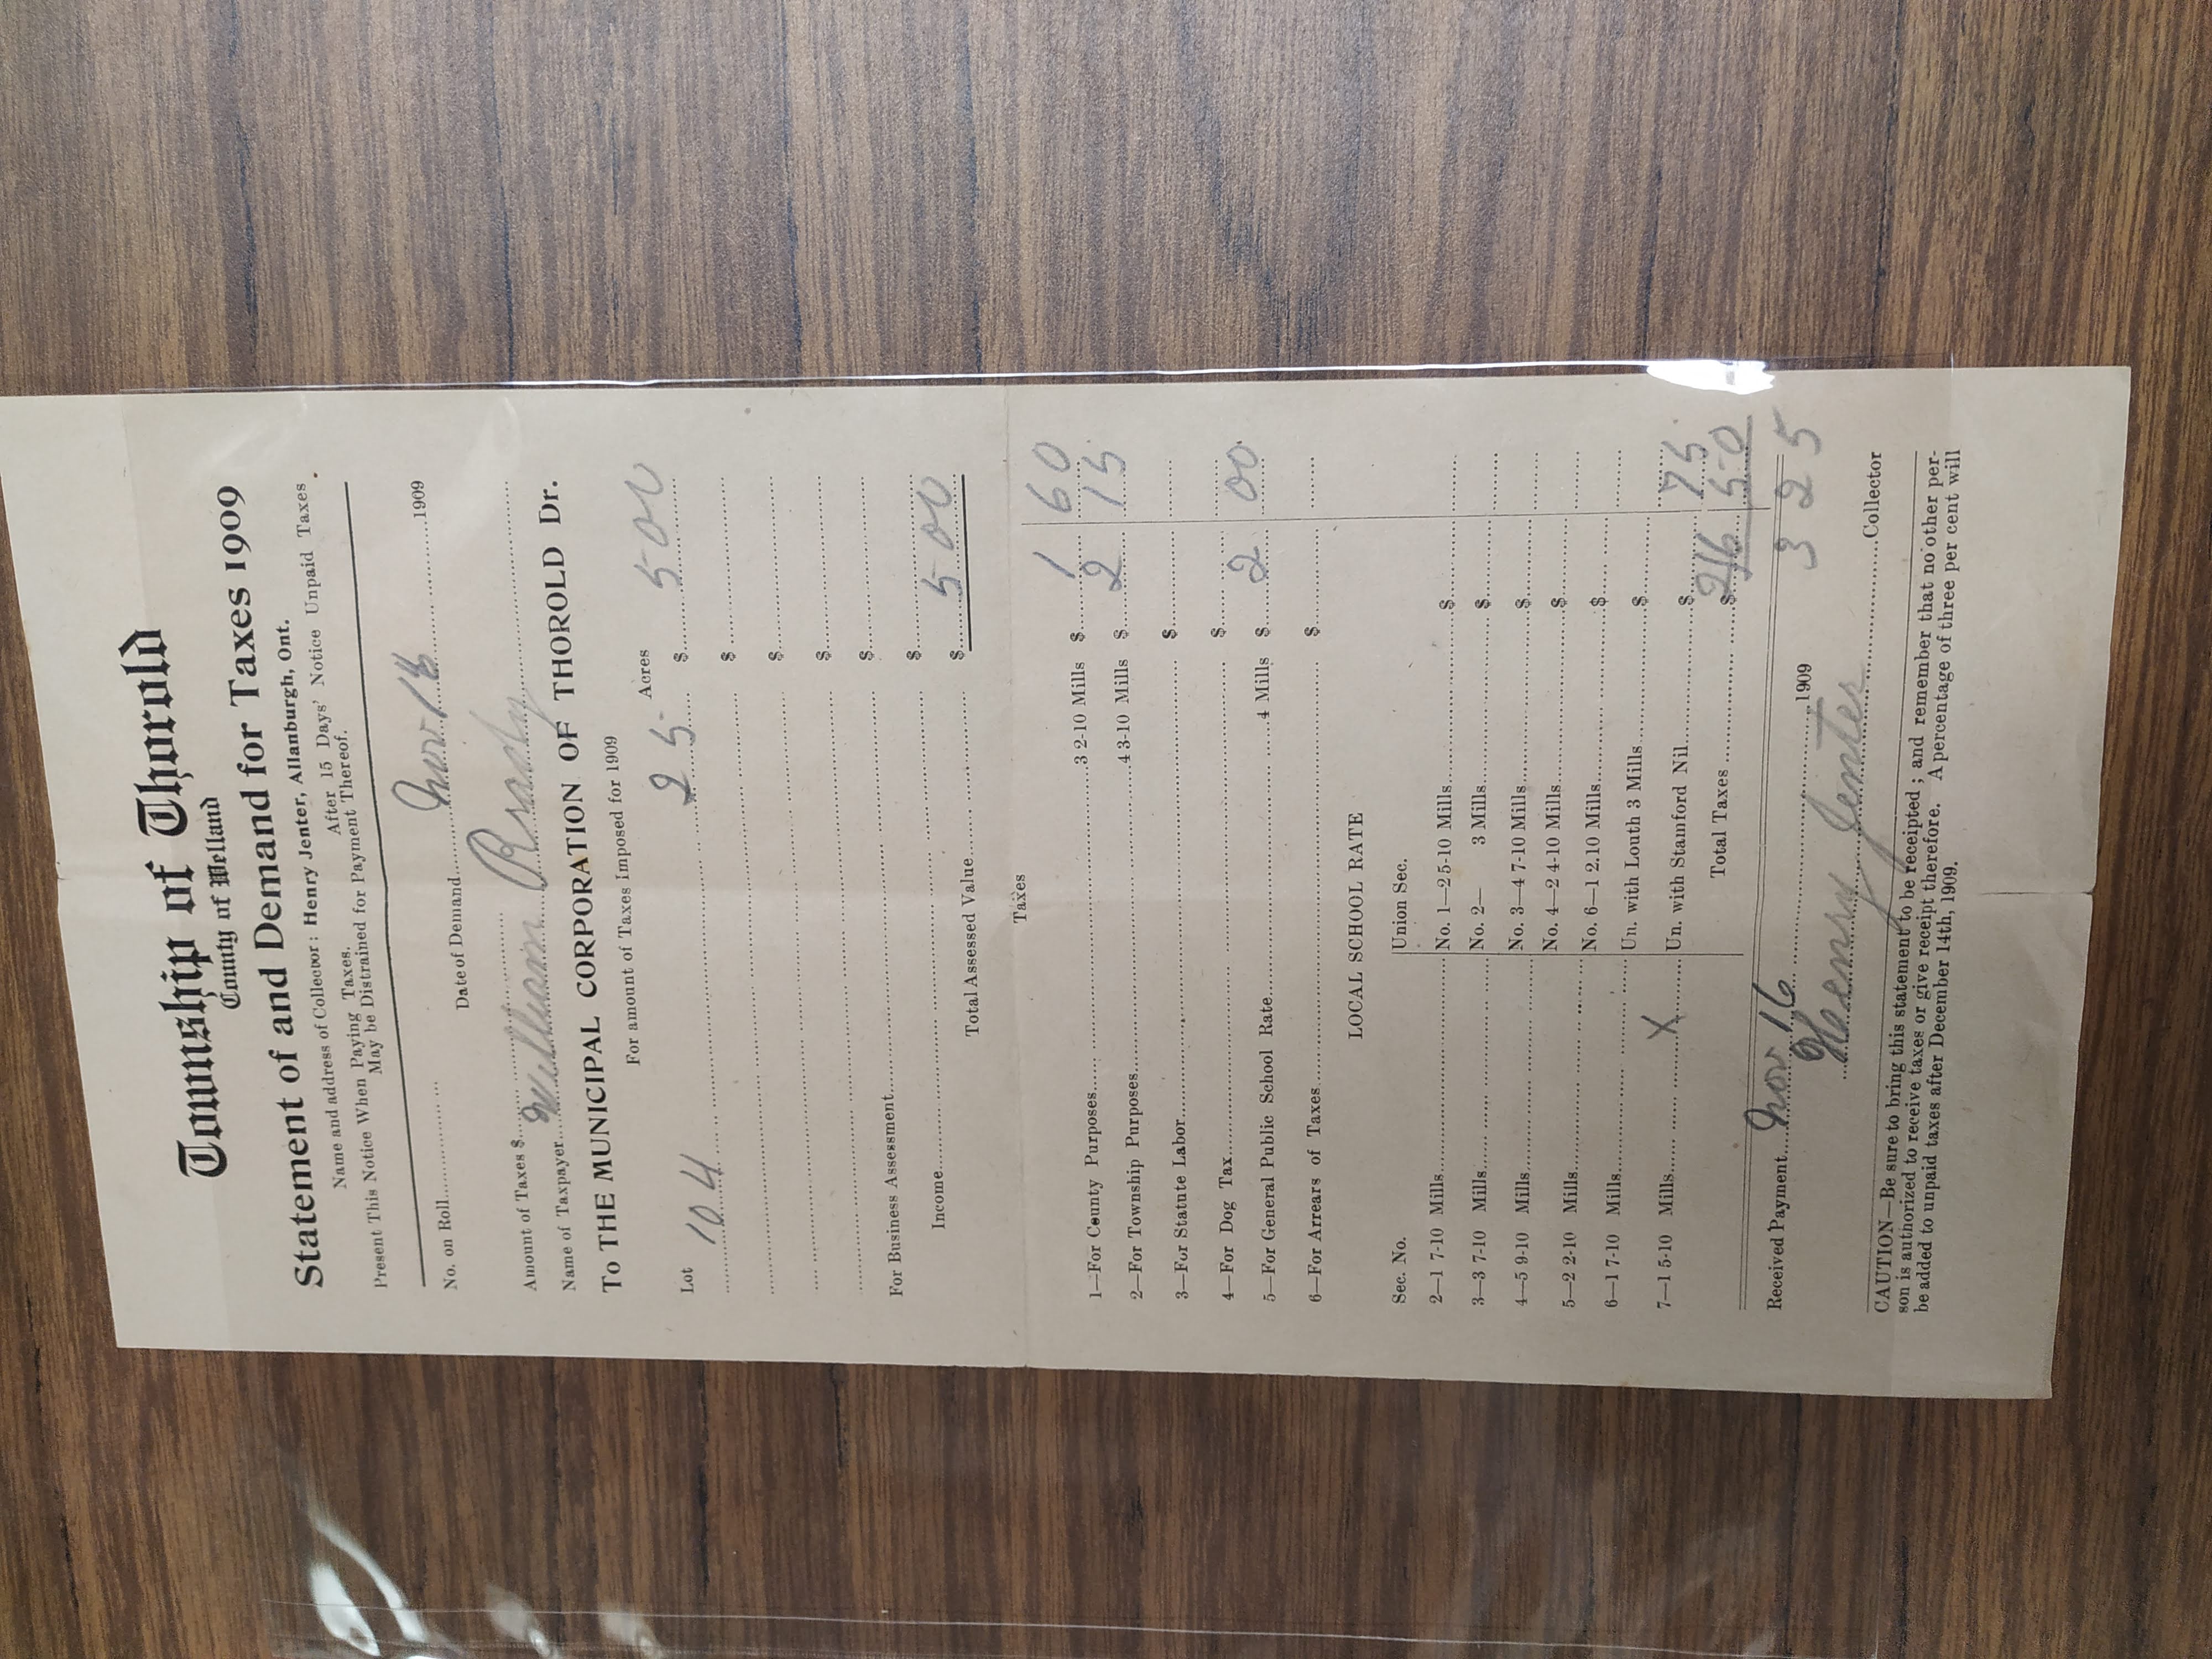 Township of Thorold
County of Welland
Statement of and Demand for Taxes 1909
Name and address of Collector: Henry Jenter, Allanburgh, Ont.
Present This Notice When Paying Taxes. After 15 Days' Notice Unpaid Taxes
May be Distrained for Payment Thereof.
No. on Roll Date of Demand Nov 16 1909
Amount of Taxes $
Name of Taxpayer William Brady
To THE MUNICIPAL CORPORATION OF THOROLD Dr.
For amount of Taxes Imposed for 1909
Lot 104 25 Acres $ 500
$
$
$
$
For Business Assessment $
Income $
Total Assessed Value $ 500
Taxes
1—For County Purposes 3 2-10 Mills $ 1 60
2—For Township Purposes 4 3-10 Mills $ 2 15
3—For Statute Labor $
4—For Dog Tax $
5—For General Public School Rate 4 Mills $ 2 00
6—For Arrears of Taxes $
LOCAL SCHOOL RATE
Sec. No. Union Sec.
2—1 7-10 Mills No. 1—2 5-10 Mills $
3—3 7-10 Mills No. 2— 3 Mills $
4—5 9-10 Mills No. 3—4 7-10 Mills $
5—2 2-10 Mills No. 4—2 4-10 Mills $
6—1 7-10 Mills No. 6—1 2.10 Mills $
7—1 5-10 Mills X Un. with Louth 3 Mills $
Un. with Stamford Nil $ 75
Total Taxes $ 6 50
3 25
Received Payment Nov 16 1909
Henry Jenter Collector
CAUTION—Be sure to bring this statement to be receipted; and remember that no other per-
son is authorized to receive taxes or give receipt therefore. A percentage of three per cent will
be added to unpaid taxes after December 14th, 1909.